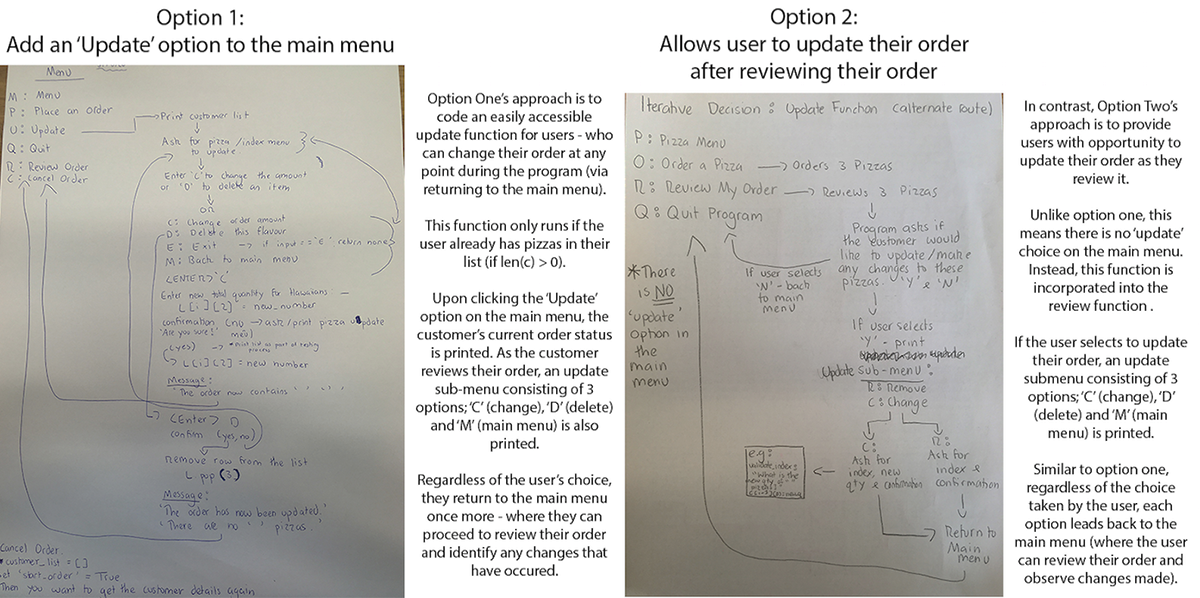 Option 1:
Add an ‘Update’ option to the main menu
Menu
M : Menu
P : Place an order
U : Update
Q : Quit
R : Review Order
C : Cancel Order
Print customer list
Ask for pizza /index menu
to update
Enter 'C' to change the amount
or 'D' to delete an item
or
C : Change order amount
D : Delete this flavour
E : Exit → if input == 'E' return none
M : Back to main menu
<ENTER> 'C'
Enter new total quantity for Hawaiians
L[i][2] = new_number
confirmation (no → ask/print pizza update
'Are you sure!' menu)
(yes) → *Print list as part of testing
process
→ L[i][2] = new number
Message:
'The order now contains
<Enter> D
confirm (yes, no)
Remove row from the list
L pop (3)
Message:
'The order has now been updated.'
'There are no ' ' pizzas.'
Cancel Order.
customer_list = []
set 'start_order' = True
Then you want to get the customer details again
Option One’s approach is to
code an easily accessible
update function for users - who
can change their order at any
point during the program (via
returning to the main menu).
This function only runs if the
user already has pizzas in their
list (if len(c) > 0).
Upon clicking the ‘Update’
option on the main menu, the
customer’s current order status
is printed. As the customer
reviews their order, an update
sub-menu consisting of 3
options; ‘C’ (change), ‘D’ (delete)
and ‘M’ (main menu) is also
printed.
Regardless of the user’s choice,
they return to the main menu
once more - where they can
proceed to review their order
and identify any changes that
have occured.
Option 2:
Allows user to update their order
after reviewing their order
Iterative Decision : Update Function (alternate route)
P : Pizza Menu
O : Order a Pizza → Orders 3 Pizzas
R : Review My Order → Reviews 3 Pizzas
Q : Quit Program
Program asks if
the customer would
like to update/make
any changes to these
pizzas. 'Y' & 'N'
If user selects
'N' - back
to main
menu
*There
is NO
'update'
option in
the
main
menu
If user selects
'Y' - print
Update Sub-menu :
R : Remove
C : Change
C :
Ask for
index, new
qty & confirmation
R :
Ask for
index &
confirmation
e.g:
"What is the
new qty
Return to
Main
menu
In contrast, Option Two’s
approach is to provide
users with opportunity to
update their order as they
review it.
Unlike option one, this
means there is no ‘update’
choice on the main menu.
Instead, this function is
incorporated into the
review function .
If the user selects to update
their order, an update
submenu consisting of 3
options; ‘C’ (change), ‘D’
(delete) and ‘M’ (main
menu) is printed.
Similar to option one,
regardless of the choice
taken by the user, each
option leads back to the
main menu (where the user
can review their order and
observe changes made).